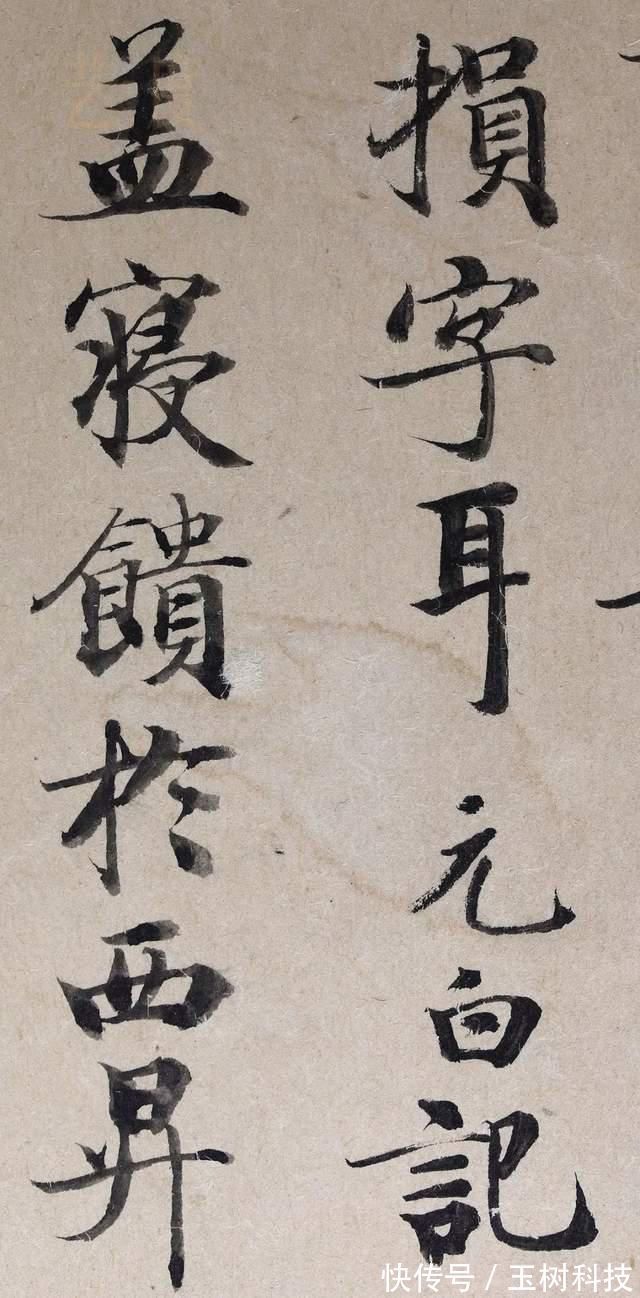 損字耳元白記
盖寢饋於西昇
快传号／玉树科技